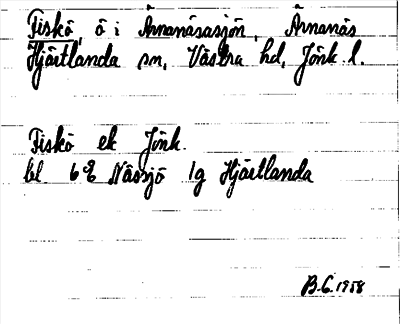 Fiskö, ö i Ärnanäsasjön, Ärnanäs
Hjärtlanda sn, Västra hd, Jönk. l.
Fiskö ek Jönk.
bl 6 E Nässjö 1g Hjärtlanda
B.G. 1958